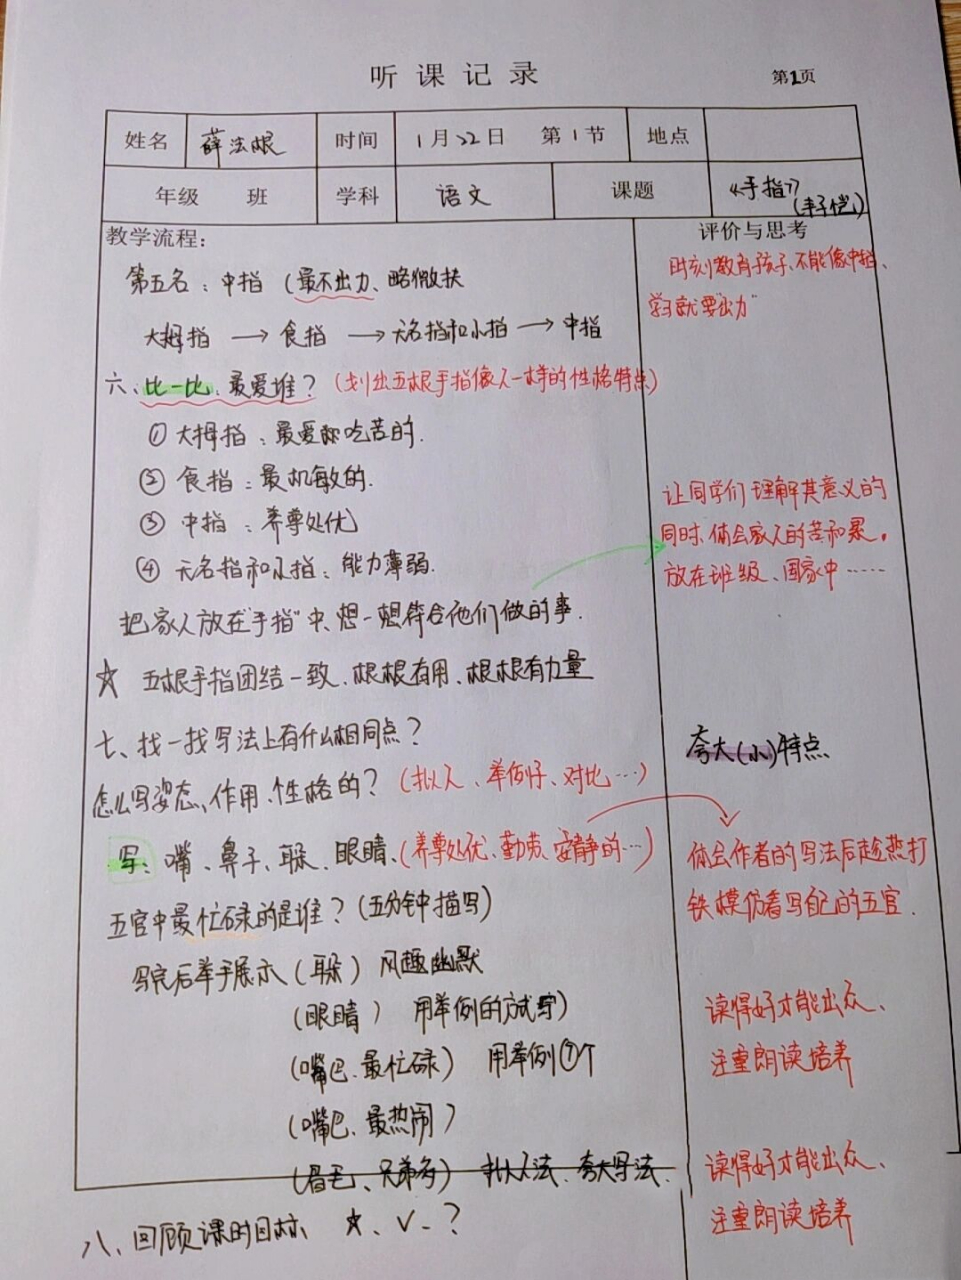 听课记录
第1页
姓名 薛法根 时间 1月22日 第1节 地点
年级 班 学科 语文 课题 《手指》(丰子恺)
教学流程：
评价与思考
第五名：中指（最不出力、略微扶
时刻教育孩子、不能像中指、
学习就要"出力"
大拇指→食指→无名指和小指→中指
六、比一比，最爱谁？（划出五根手指像人一样的性格特点）
①大拇指：最爱你吃苦的.
②食指：最机敏的.
③中指：养尊处优
④无名指和小指：能力薄弱.
把家人放在"手指"中、想一想符合他们做的事.
让同学们理解其意义的
同时、体会家人的苦和累。
放在班级、国家中……
☆ 五根手指团结一致、根根有用、根根有力量
七、找一找写法上有什么相同点？
夸大(小)特点
怎么写姿态、作用、性格的？（拟人、举例子、对比…）
写：嘴、鼻子、耳朵、眼睛、（养尊处优、勤劳、安静的…）
体会作者的写法后趁热打
铁模仿着写自己的五官.
五官中最忙碌的是谁？（五分钟描写）
写完后举手展示（耳朵）风趣幽默
（眼睛）用举例的方式写）
（嘴巴、最忙碌）用举例⑦个
（嘴巴、最热闹）
（眉毛、兄弟多）拟人法、夸大写法.
读得好才能出众、
注重朗读培养
读得好才能出众、
注重朗读培养
八、回顾课时目标 ☆、√、？